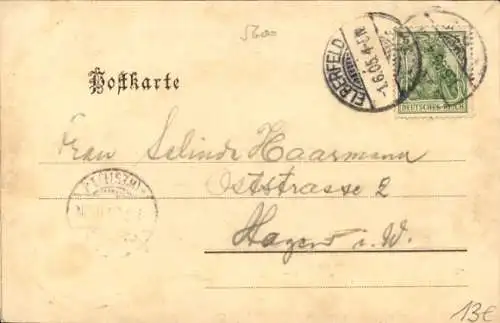 5600
Postkarte
ELBERFELD
1.6.03.4-5N
5
DEUTSCHES REICH
Frau Selinde Haarmann
Oststrasse 2
Hagen i. W.
(WESTF.)
13€